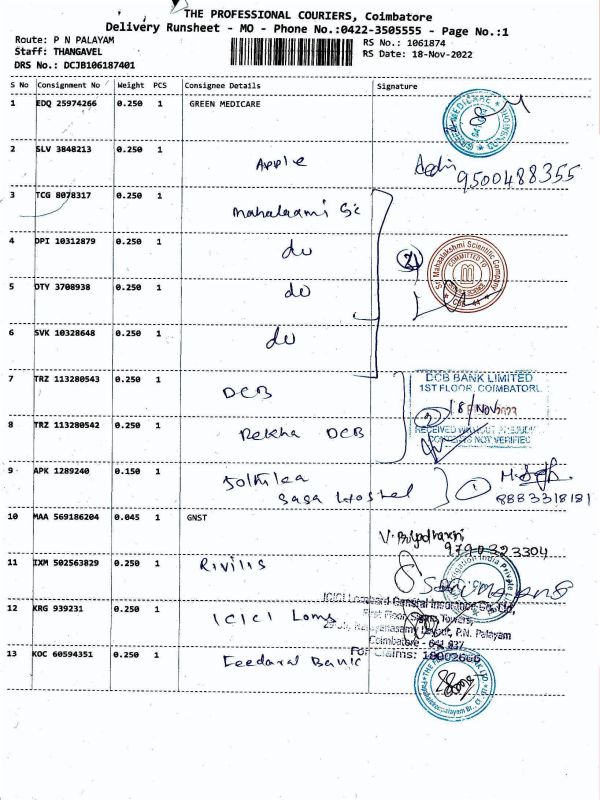 THE PROFESSIONAL COURIERS, Coimbatore
Delivery Runsheet - MO - Phone No.:0422-3505555 - Page No.:1
Route: P N PALAYAM
RS No.: 1061874
Staff: THANGAVEL
RS Date: 18-Nov-2022
DRS No.: DCJB106187401
S No Consignment No Weight PCS Consignee Details Signature
1 EDQ 25974266 0.250 1 GREEN MEDICARE
2 SLV 3848213 0.250 1 Apple 9500488355
3 TCG 8078317 0.250 1
4 DPI 10312879 0.250 1 do
Sri Mahaalakshmi Scientific Company
COMMITTED TO
5 OTY 3708938 0.250 1 do
6 SVK 10328648 0.250 1 do
7 TRZ 113280543 0.250 1 DCB
DCB BANK LIMITED
1ST FLOOR, COIMBATORE
18 NOV 2022
8 TRZ 113280542 0.250 1 Rekha DCB
RECEIVED WITHOUT
CONTENTS NOT VERIFIED
9 APK 1289240 0.150 1
Sasa Hostel
8883318181
10 MAA 569186204 0.045 1 GNST
9790323304
11 IXM 502563829 0.250 1 Rivilis
ICICI Lombard General Insurance Co. Ltd,
12 KRG 939231 0.250 1 ICICI Lom
P.N. Palayam
Coimbatore - 641 037
For Claims: 18002666
13 KOC 60594351 0.250 1 Feedaral Bank